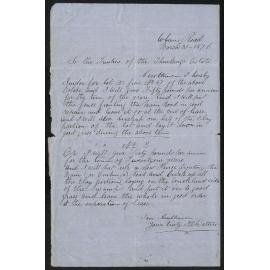 Cobury Road
March 31st 1876
To the Trustees of the Thornbury Estate
Gentlemen I hereby
Tender for Lot No of the above
Estate and I will give Fifty pounds per annum
for the term of five years. And I will put
the fence fronting the Main Road in good
repair and leave it so at the end of lease
and I will also break up of the Clay
portion of the lot and lay it down in
good grass during the above term
No 2
Or I will give Sixty pounds per annum
for the term of Twentyone years
and I will put up a new fence fronting the
Main Road and break up all
the Clay portion laying on the south east side
of the Swamp and put it in to good
grass and leave the whole in good order
at the expiration of lease.
I am Gentlemen
Yours truly